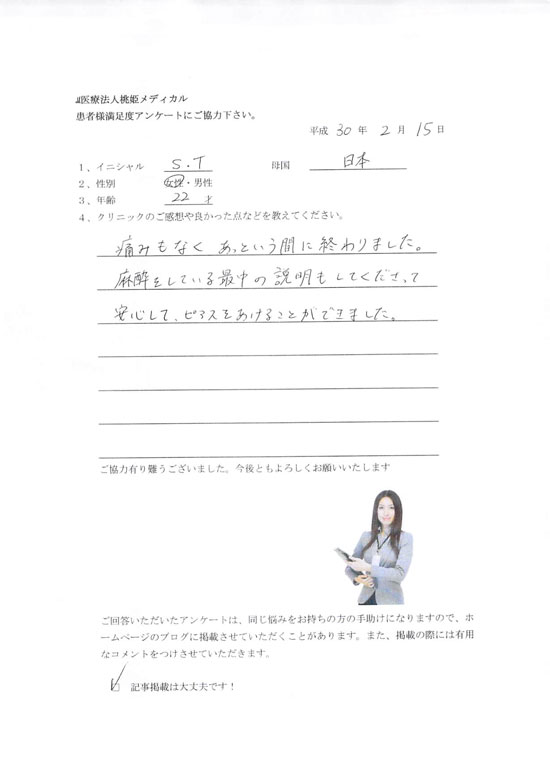 医療法人桃姫メディカル
患者様満足度アンケートにご協力下さい。
平成 30 年 2 月 15 日
1、イニシャル S.T 母国 日本
2、性別 女性・男性
3、年齢 22 才
4、クリニックのご感想や良かった点などを教えてください。
痛みもなく あっという間に終わりました。
麻酔をしている最中の説明もしてくださって
安心して、ピアスをあけることができました。
ご協力有り難うございました。今後ともよろしくお願いいたします
ご回答いただいたアンケートは、同じ悩みをお持ちの方の手助けになりますので、ホ
ームページのブログに掲載させていただくことがあります。また、掲載の際には有用
なコメントをつけさせていただきます。
記事掲載は大丈夫です！